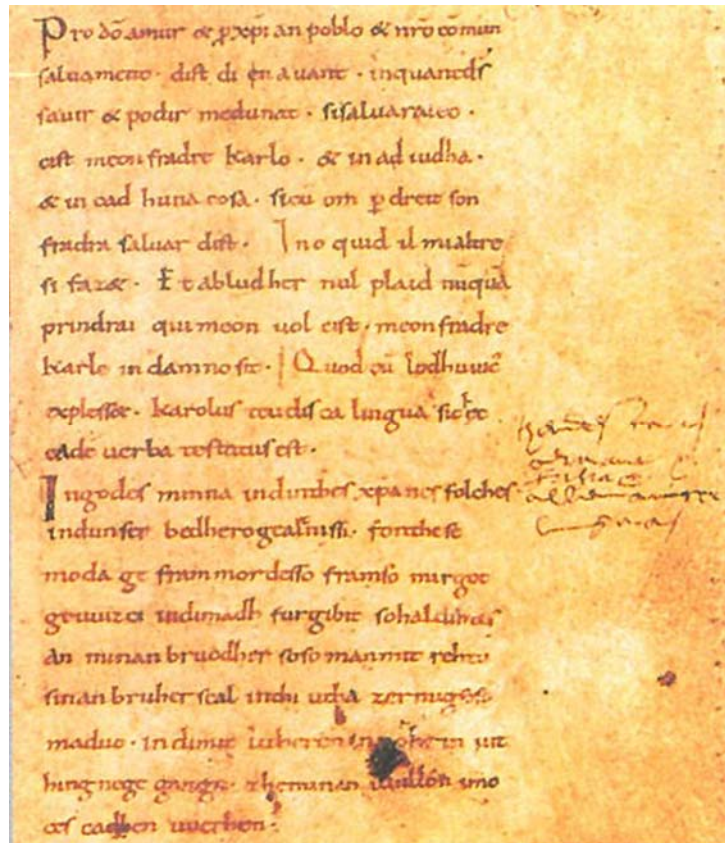 Pro dō amur & p xpi an poblo & nrō cōmun
saluament · dist di en auant · inquantds
sauir & podir medunat · sisaluaraieo ·
cist meon fradre Karlo · & in ad iudha ·
& in cad huna cosa · sicū om p dreit son
fradra saluar dist · Ino quid il mialtre
si faz& · Et abludher nul plaid nūquā
prindrai qui meon uol cist · meon fradre
Karle in damno sit · Quod cū lodhuuic
explesset · Karolus teudisca lingua sic ec
eadē uerba testatus est ·
Ingodes minna indinthes xpanes folches
indunser bedhero gealtnissi · fonthese
moda ge frammordesso framso mirgot
geuuizci indimadh furgibit sohaldihtes
an minan bruodher soso man mit rehtu
sinan bruher scal inthi utha zermigsoso
maduo · indimit luheren in nohein iut
hing nege gango · zheminan uuillon imo
ces cadhen uuerhen ·